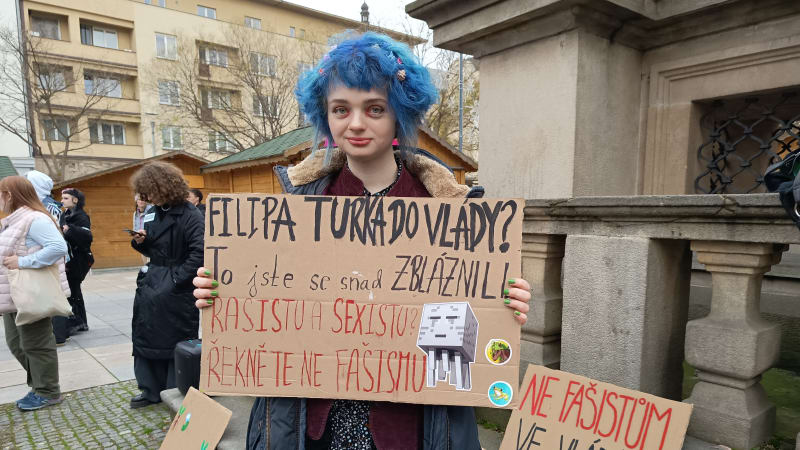 FILIPA TURKA DO VLÁDY?
To jste se snad ZBLÁZNILI
RASISTU A SEXISTU?
ŘEKNĚTE NE FAŠISMU
NE FAŠISTŮM
VE